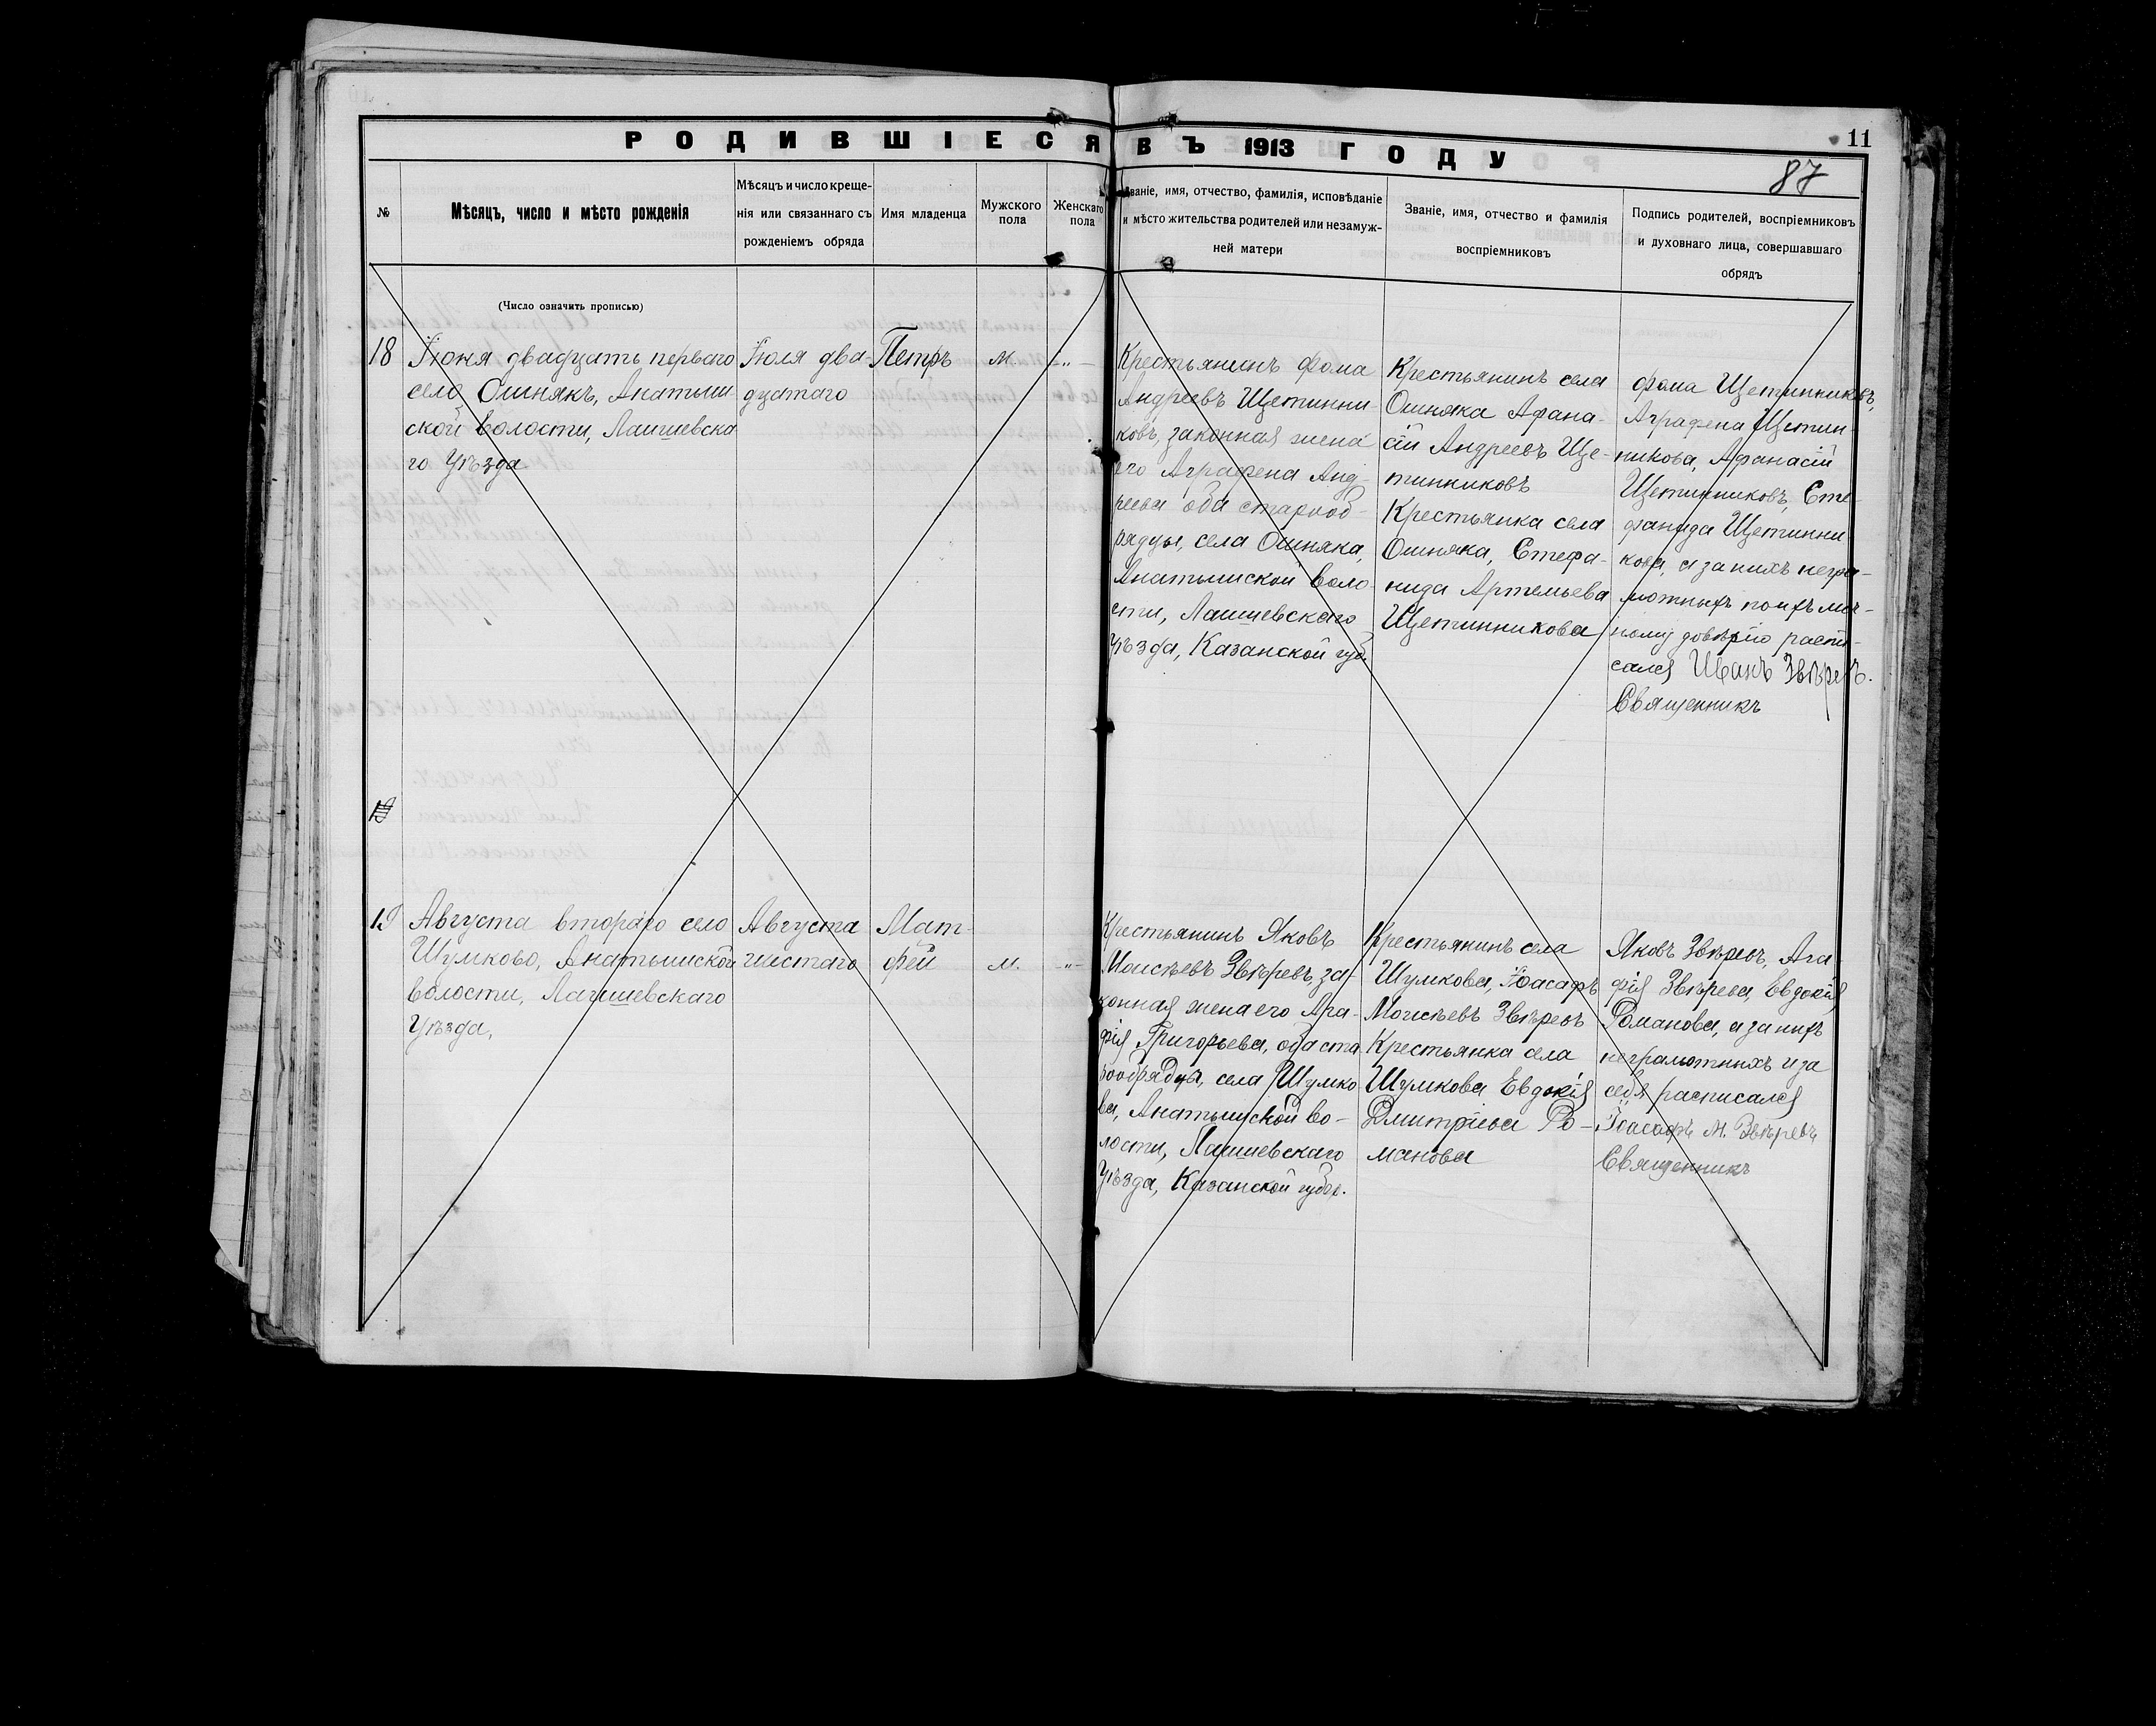 РОДИВШІЕСЯ ВЪ 1913 ГОДУ
11
87
№
Мѣсяцъ, число и мѣсто рожденія
Мѣсяцъ и число креще-
нія или связаннаго съ
рожденіемъ обряда
Имя младенца
Мужского
пола
Женскаго
пола
Званіе, имя, отчество, фамилія, исповѣданіе
и мѣсто жительства родителей или незамуж-
ней матери
Званіе, имя, отчество и фамилія
воспріемниковъ
Подпись родителей, воспріемниковъ
и духовнаго лица, совершавшаго
обрядъ
(Число означить прописью)
18
Іюня двадцать перваго
село Ошнякъ, Анатыш
ской волости, Лаишевска
го Уѣзда
Іюля два-
дцатаго
Петръ
м.
-"-
Крестьянинъ Фома
Андреевъ Щетинни-
ковъ, законная жена
его Аграфена Анд-
реева оба старооб-
рядцы, села Ошняка,
Анатышской воло-
сти, Лаишевскаго
Уѣзда, Казанской губ
Крестьянинъ села
Ошняка Афана-
сій Андреевъ Ще-
тинниковъ
Крестьянка села
Ошняка, Стефа-
нида Артемьева
Щетинникова
Фома Щетинниковъ,
Аграфена Щетин-
никова, Афанасій
Щетинниковъ, Сте-
фанида Щетинни
кова, а за нихъ негра-
мотныхъ по ихъ лич-
ному довѣрію распи-
сался Иванъ Звѣревъ.
Священникъ
19
Августа второго село
Шумково, Анатышской
волости, Лаишевскаго
Уѣзда,
Августа
шестаго
Мат-
фей
м.
-"-
Крестьянинъ Яковъ
Моисѣевъ Звѣревъ, за-
конная жена его Ага-
фія Григорьева, оба ста
рообрядцы, села Шумко
ва, Анатышской во-
лости, Лаишевскаго
Уѣзда, Казанской губер.
Крестьянинъ села
Шумкова, Іоасафъ
Моисѣевъ Звѣревъ
Крестьянка села
Шумкова Евдокія
Дмитріева Ро-
манова
Яковъ Звѣревъ, Ага
фія Звѣрева, Евдокія
Романова, а за нихъ
неграмотныхъ и за
себя расписался
Іоасафъ М. Звѣревъ
Священникъ